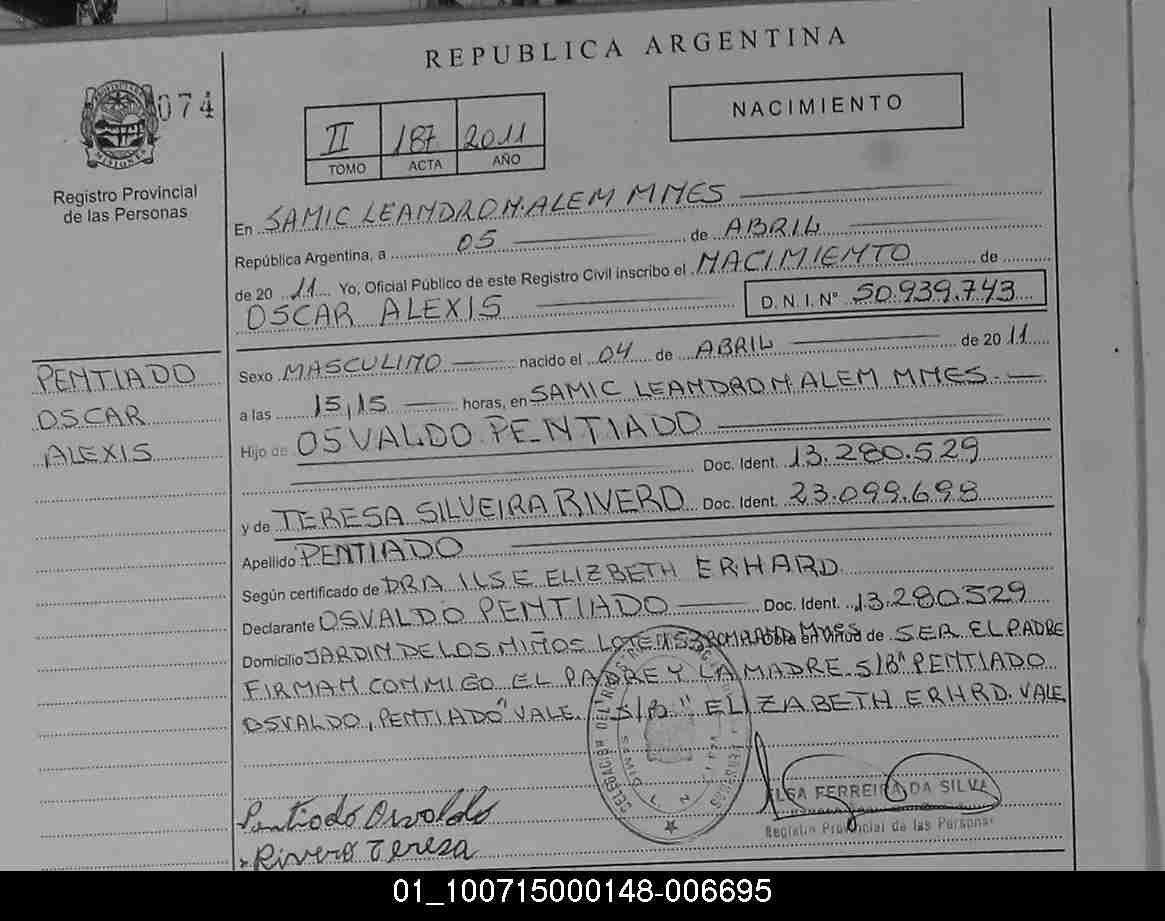 REPUBLICA ARGENTINA
074
MISIONES
Registro Provincial
de las Personas
II 187 2011
TOMO ACTA AÑO
NACIMIENTO
En SAMIC LEANDRO N. ALEM MNES
República Argentina, a 05 de ABRIL
de 20 11 Yo, Oficial Público de este Registro Civil inscribo el NACIMIENTO de
OSCAR ALEXIS D. N. I. Nº 50.939.743
PENTIADO
OSCAR
ALEXIS
Sexo MASCULINO nacido el 04 de ABRIL de 20 11
a las 15,15 horas, en SAMIC LEANDRO N. ALEM MNES
Hijo de OSVALDO PENTIADO
Doc. Ident. 13.280.529
y de TERESA SILVEIRA RIVERO Doc. Ident. 23.099.698
Apellido PENTIADO
Según certificado de DRA ILSE ELIZBETH ERHARD
Declarante OSVALDO PENTIADO Doc. Ident. 13.280529
Domicilio JARDIN DE LOS NIÑOS LOTE MNES Obra en virtud de SER EL PADRE
FIRMAN CONMIGO EL PADRE Y LA MADRE S/Bº PENTIADO
OSVALDO, PENTIADO" VALE. S/B " ELIZABETH ERHRD. VALE
Pentiado Osvaldo
Rivero Teresa
ELSA FERREIRA DA SILVA
Registro Provincial de las Personas
01_100715000148-006695